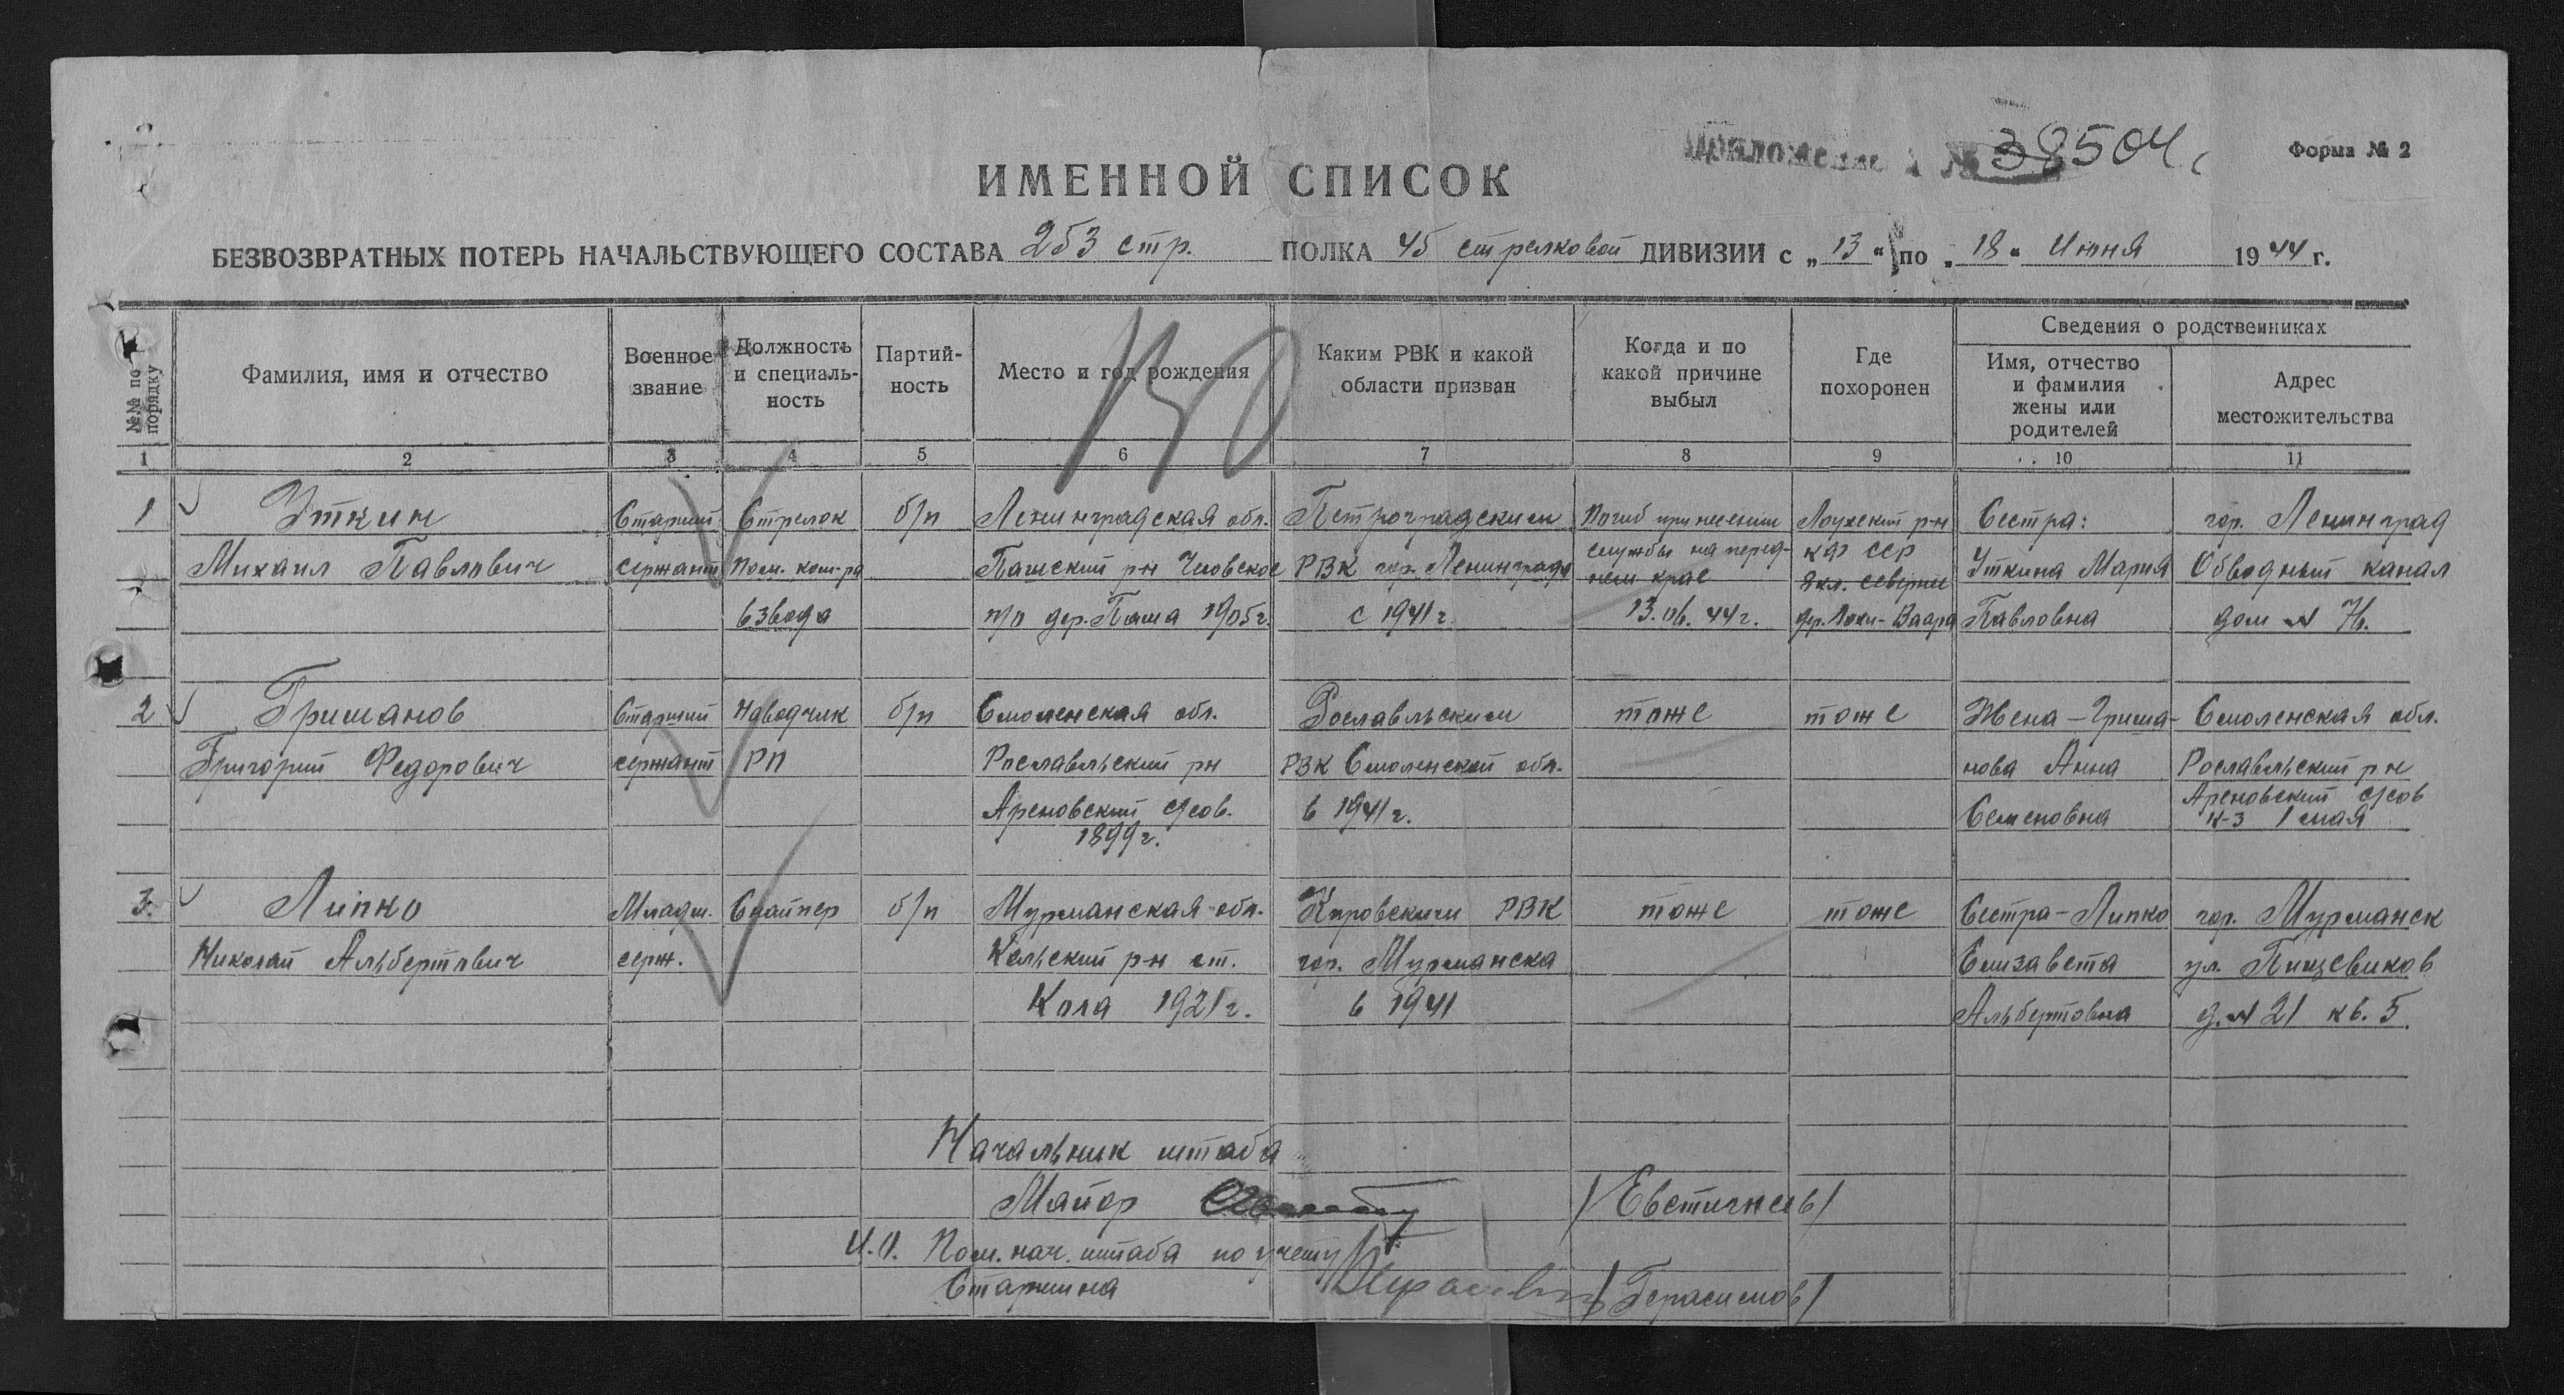 Приложение к № 38504
Форма № 2
ИМЕННОЙ СПИСОК
БЕЗВОЗВРАТНЫХ ПОТЕРЬ НАЧАЛЬСТВУЮЩЕГО СОСТАВА 253 стр. ПОЛКА 45 стрелковой ДИВИЗИИ с „13“ по „18“ Июня 1944 г.
№№ по порядку
Фамилия, имя и отчество
Военное звание
Должность и специаль-ность
Партий-ность
Место и год рождения
Каким РВК и какой области призван
Когда и по какой причине выбыл
Где похоронен
Сведения о родственниках
Имя, отчество и фамилия жены или родителей
Адрес местожительства
150
1 2 3 4 5 6 7 8 9 10 11
1 Уткин Старший Стрелок б/п Ленинградская обл. Петроградским Погиб при несении Лоухский р-н Сестра: гор. Ленинград
Михаил Павлович сержант Пом. ком-ра Пашский р-н РВК гор. Ленинграда службы на перед- КФ ССР Уткина Мария Обводный канал
нем крае севернее
взвода п/о дер. Паша 1905г. с 1941г. 13.06.44г. Ваара Павловна дом № 76.
2 Гришанов Старший Наводчик б/п Смоленская обл. Рославльским тоже тоже Жена - Гриша- Смоленская обл.
Григорий Федорович сержант РП Рославльский рн РВК Смоленской обл. нова Анна Рославльский р-н
Арсновский с/сов. в 1941г. Семеновна Арсновский с/сов
1899г. к-з 1 мая
3. Липко Младш. Снайпер б/п Мурманская обл. Кировским РВК тоже тоже Сестра - Липко гор. Мурманск
Николай Альбертович серж. Кольский р-н ст. гор. Мурманска Елизавета ул. Пищевиков
Кола 1921г. в 1941 Альбертовна д. № 21 кв. 5.
Начальник штаба
Майор /Евстигнеев/
И.О. Пом. нач. штаба по учету
Старшина /Герасимов/